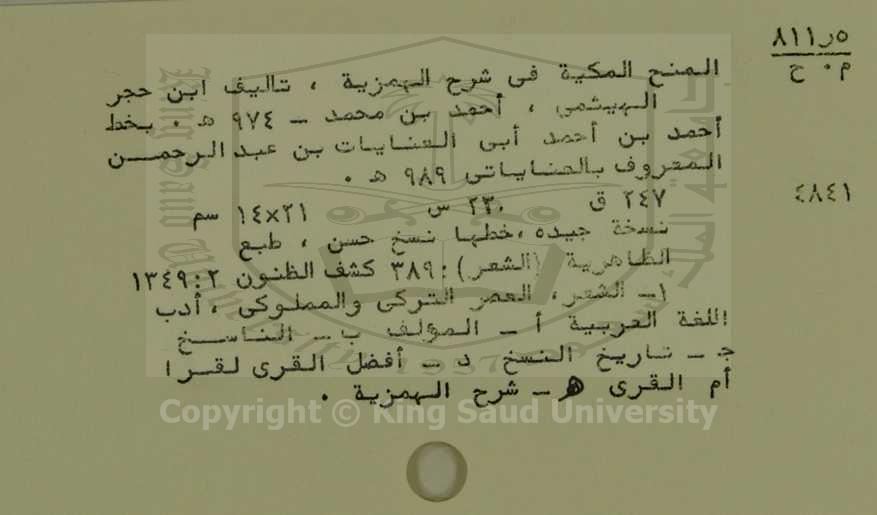 ٨١١ر٥
م ٠ ح
المنح المكية فى شرح الهمزية ، تاليف ابن حجر
الهيثمى ، أحمد بن محمد ـ ٩٧٤ هـ ٠ بخط
أحمد بن أحمد أبى العنايات بن عبد الرحمـــن
المعروف بالعناياتى ٩٨٩ هـ ٠
٤٨٤١
٢٤٧ ق ٢٣٠ س ٢١×١٤ سم
نسخة جيده ،خطها نسخ حسن ، طبع
الظاهرية (الشعر):٣٨٩ كشف الظنون ٢:١٣٤٩
١ـ الشعر، العصر التركى والمملوكى ، أدب
اللغة العربية أ ـ المؤلف ب ـ الناســـخ
جـ ـ تاريخ النسخ د ـ أفضل القرى لقرا
أم القرى هـ ـ شرح الهمزية ٠
1957
Copyright © King Saud University